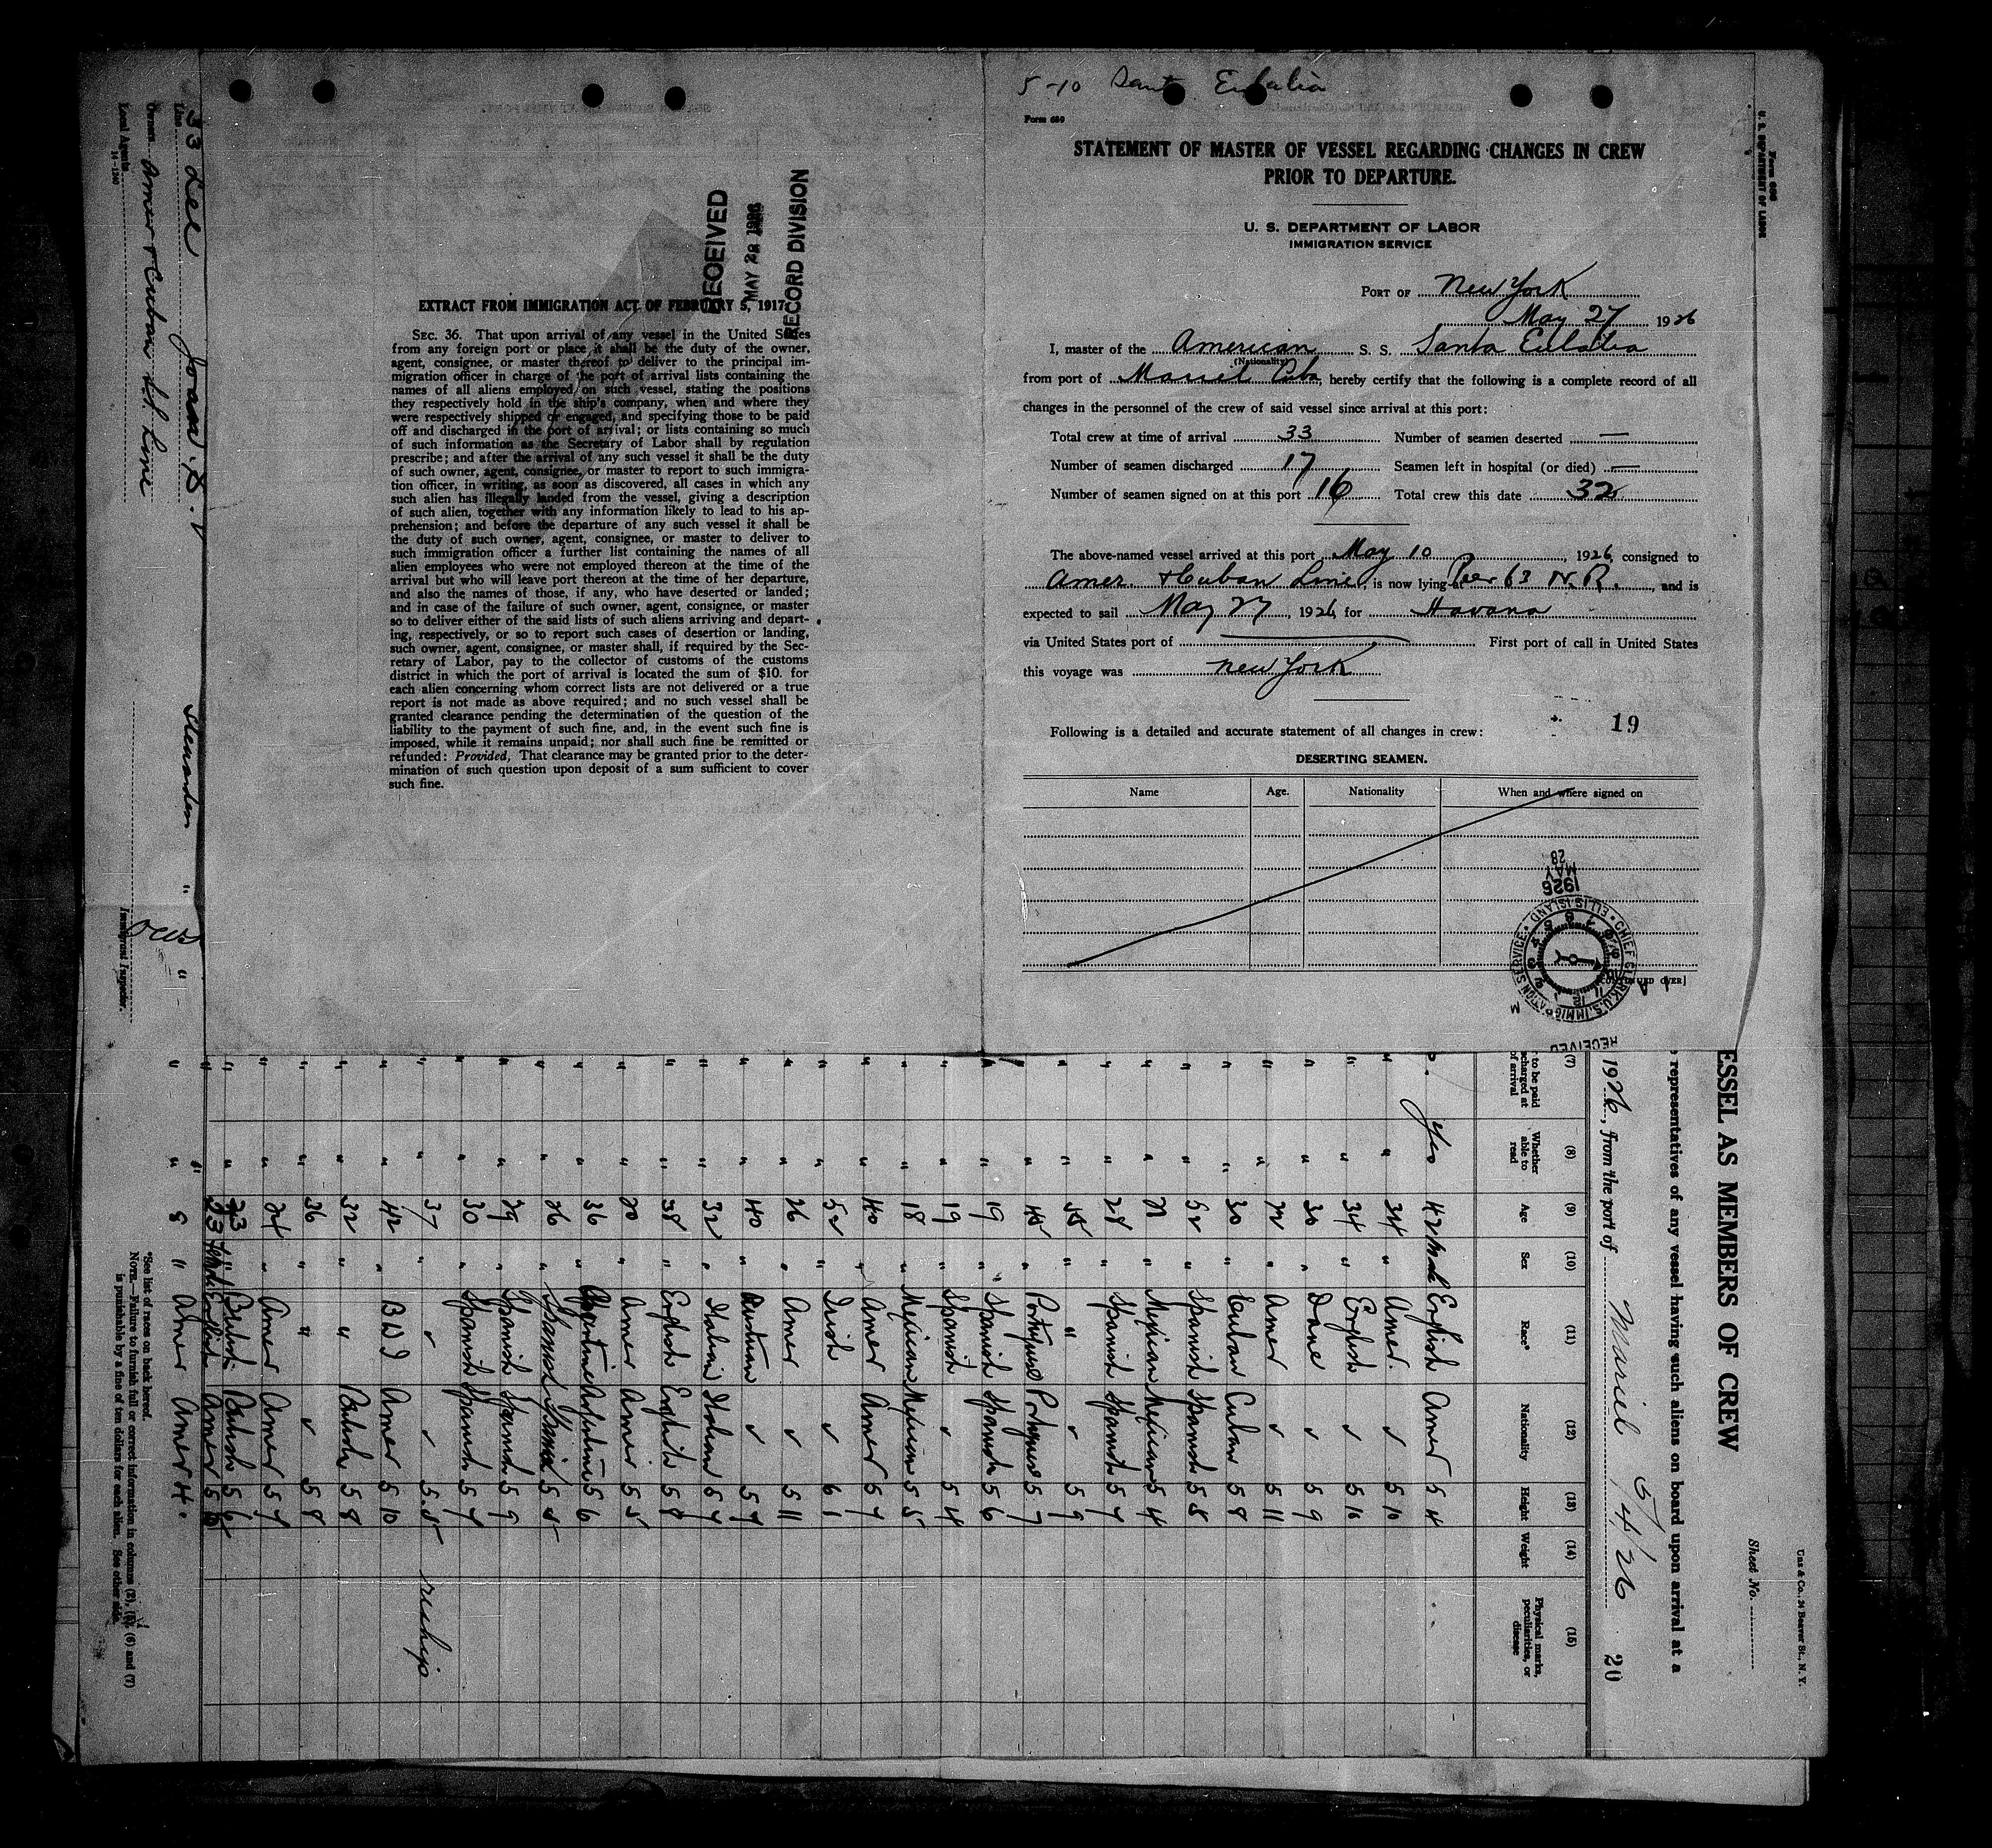 5-10 Santa Eulalia
Form 689
STATEMENT OF MASTER OF VESSEL REGARDING CHANGES IN CREW
PRIOR TO DEPARTURE.
U. S. DEPARTMENT OF LABOR
IMMIGRATION SERVICE
PORT OF New York
May 27 1926
I, master of the American S. S. Santa Eulalia
(Nationality)
from port of Mariel Cuba, hereby certify that the following is a complete record of all
changes in the personnel of the crew of said vessel since arrival at this port:
Total crew at time of arrival 33 Number of seamen deserted —
Number of seamen discharged 17 Seamen left in hospital (or died) —
Number of seamen signed on at this port 16 Total crew this date 32
The above-named vessel arrived at this port May 10, 1926, consigned to
Amer. & Cuban Line, is now lying at Pier 63 N. R., and is
expected to sail May 27, 1926, for Havana
via United States port of — First port of call in United States
this voyage was New York
19
Following is a detailed and accurate statement of all changes in crew:
DESERTING SEAMEN.
Name Age. Nationality When and where signed on
[CONTINUED OVER]
1926
MAY
28
CHIEF CLERK, U.S. IMMIGRATION SERVICE • ELLIS ISLAND •
RECEIVED
RECEIVED
MAY 28 1926
RECORD DIVISION
EXTRACT FROM IMMIGRATION ACT OF FEBRUARY 5, 1917.
SEC. 36. That upon arrival of any vessel in the United States
from any foreign port or place it shall be the duty of the owner,
agent, consignee, or master thereof to deliver to the principal im-
migration officer in charge of the port of arrival lists containing the
names of all aliens employed on such vessel, stating the positions
they respectively hold in the ship's company, when and where they
were respectively shipped or engaged, and specifying those to be paid
off and discharged in the port of arrival; or lists containing so much
of such information as the Secretary of Labor shall by regulation
prescribe; and after the arrival of any such vessel it shall be the duty
of such owner, agent, consignee, or master to report to such immigra-
tion officer, in writing, as soon as discovered, all cases in which any
such alien has illegally landed from the vessel, giving a description
of such alien, together with any information likely to lead to his ap-
prehension; and before the departure of any such vessel it shall be
the duty of such owner, agent, consignee, or master to deliver to
such immigration officer a further list containing the names of all
alien employees who were not employed thereon at the time of the
arrival but who will leave port thereon at the time of her departure,
and also the names of those, if any, who have deserted or landed;
and in case of the failure of such owner, agent, consignee, or master
so to deliver either of the said lists of such aliens arriving and depart-
ing, respectively, or so to report such cases of desertion or landing,
such owner, agent, consignee, or master shall, if required by the Sec-
retary of Labor, pay to the collector of customs of the customs
district in which the port of arrival is located the sum of $10. for
each alien concerning whom correct lists are not delivered or a true
report is not made as above required; and no such vessel shall be
granted clearance pending the determination of the question of the
liability to the payment of such fine, and, in the event such fine is
imposed, while it remains unpaid; nor shall such fine be remitted or
refunded: Provided, That clearance may be granted prior to the deter-
mination of such question upon deposit of a sum sufficient to cover
such fine.
Form 680
U. S. DEPARTMENT OF LABOR
24 Beaver St., N. Y.
Sheet No.
ESSEL AS MEMBERS OF CREW
representatives of any vessel having such aliens on board upon arrival at a
1926, from the port of Mariel 5/4/26 20
(7) (8) (9) (10) (11) (12) (13) (14) (15)
to be paid
of arrival
Whether able to read
Age
Sex
Race*
Nationality
Height
Weight
Physical marks, peculiarities, or disease
Yes 42 Male English Amer 5 4
" 34 " Amer. ✓ 5 10
" 34 " English ✓ 5 10
" 30 " Dane ✓ 5 9
" 22 " Amer ✓ 5 11
" 30 " Cuban Cuban 5 8
" 52 " Spanish Spanish 5 8
" 22 " Mexican Mexican 5 4
" 28 " Spanish Spanish 5 7
" 45 " " ✓ 5 9
" 45 " Portuguese Portuguese 5 7
" 19 " Spanish Spanish 5 6
" 19 " Spanish ✓ 5 4
" 18 " Mexican Mexican 5 5
" 40 " Amer Amer 5 7
" 52 " Irish ✓ 6 1
" 26 " Amer ✓ 5 11
" 40 " ✓ 5 7
" 32 " Italian Italian 5 7
" 38 " English English 5 8
" 20 " Amer Amer 5 5
" 36 " Argentine Argentine 5 6
" 26 " 5 5
" 29 " Spanish Spanish 5 9
" 30 " Spanish Spanish 5 7
" 37 " ✓ ✓ 5.5 reship
" 42 " Amer 5 10
" 32 " " British 5 8
" 36 " " ✓ 5 8
" 24 " Amer Amer 5 7
" 23 " British British 5 6
33 Lee Joan
Steward
Amer Amer
Line
Owners Amer & Cuban SS. Line
Local Agents
14-1240
Immigrant Inspector.
*See list of races on back hereof.
NOTE.—Failure to furnish full or correct information in columns (2), (5), (6) and (7)
is punishable by a fine of ten dollars for each alien. See other side.